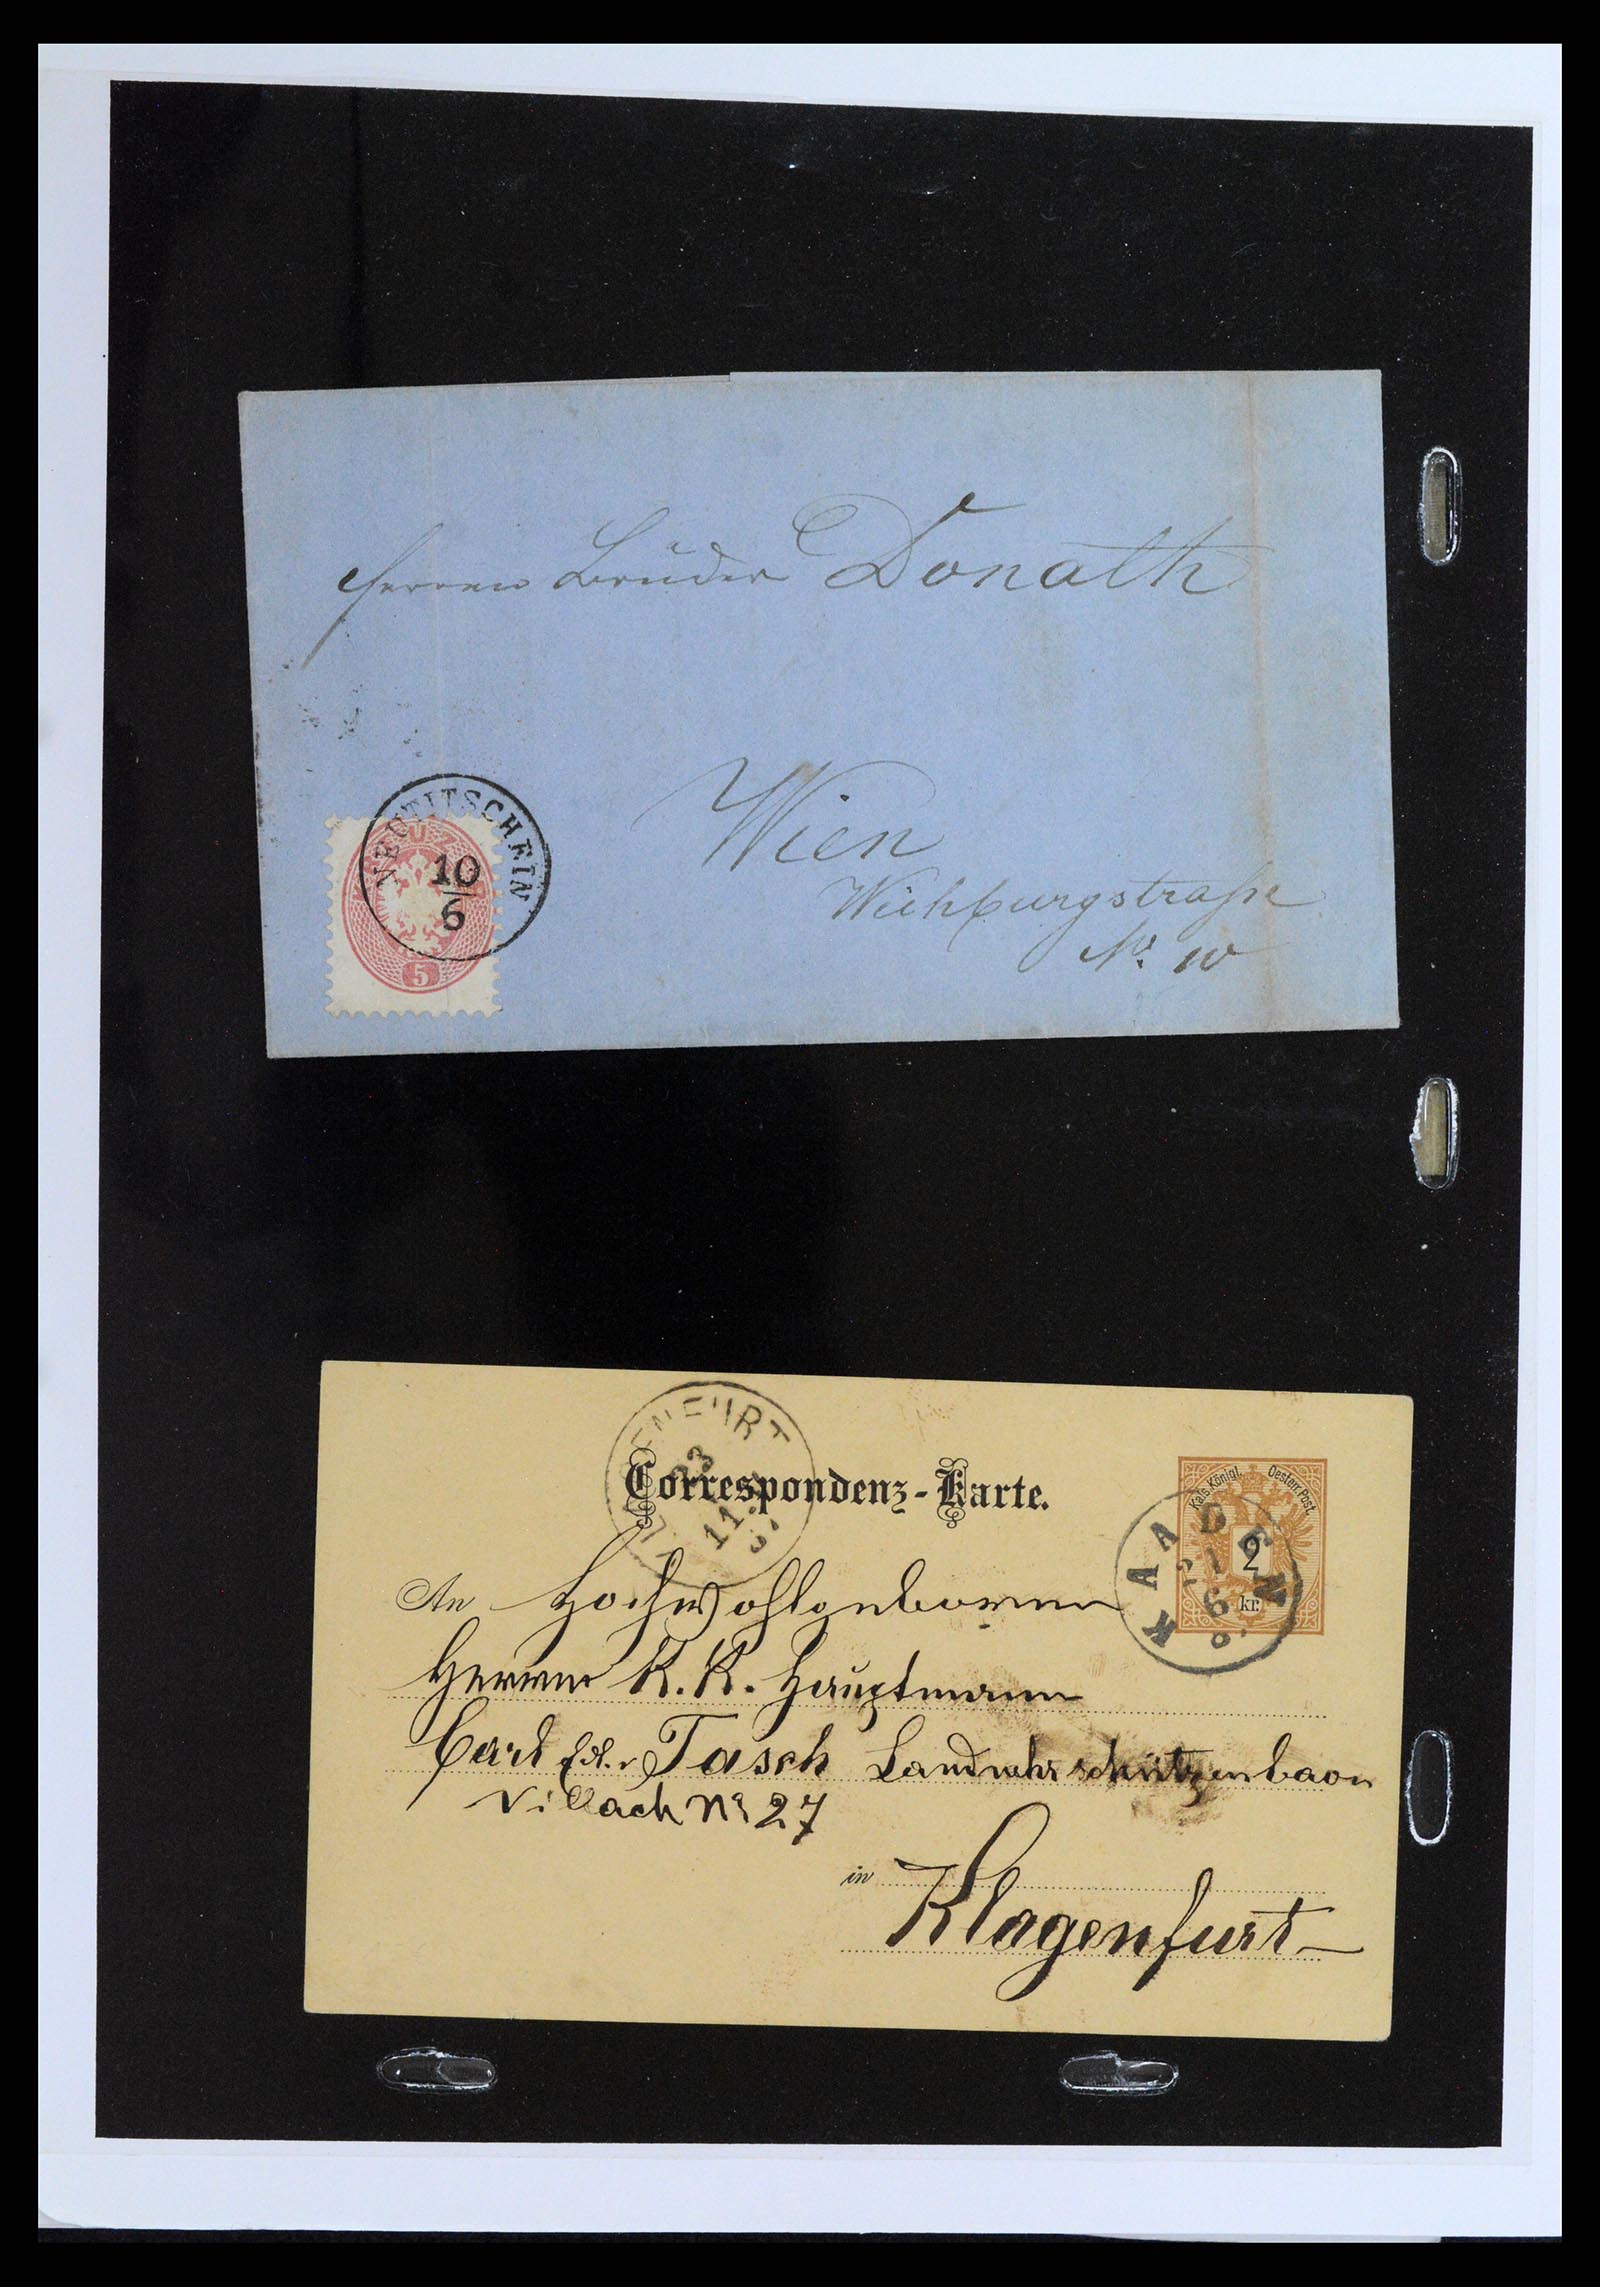 Herren Brüder Donath
NEUTITSCHEIN
10
6
5
Wien
No. 10
KLAGENFURT
23
11
Correspondenz-Karte.
Kais. Königl. Oesterr. Post.
2
kr.
KAADEN
21
6
An Hochwohlgeboren
Herren K. K. Hauptmann
Carl Edl. v Tasch Landwehrschützenbaon
Villach Nr 27
in
Klagenfurt